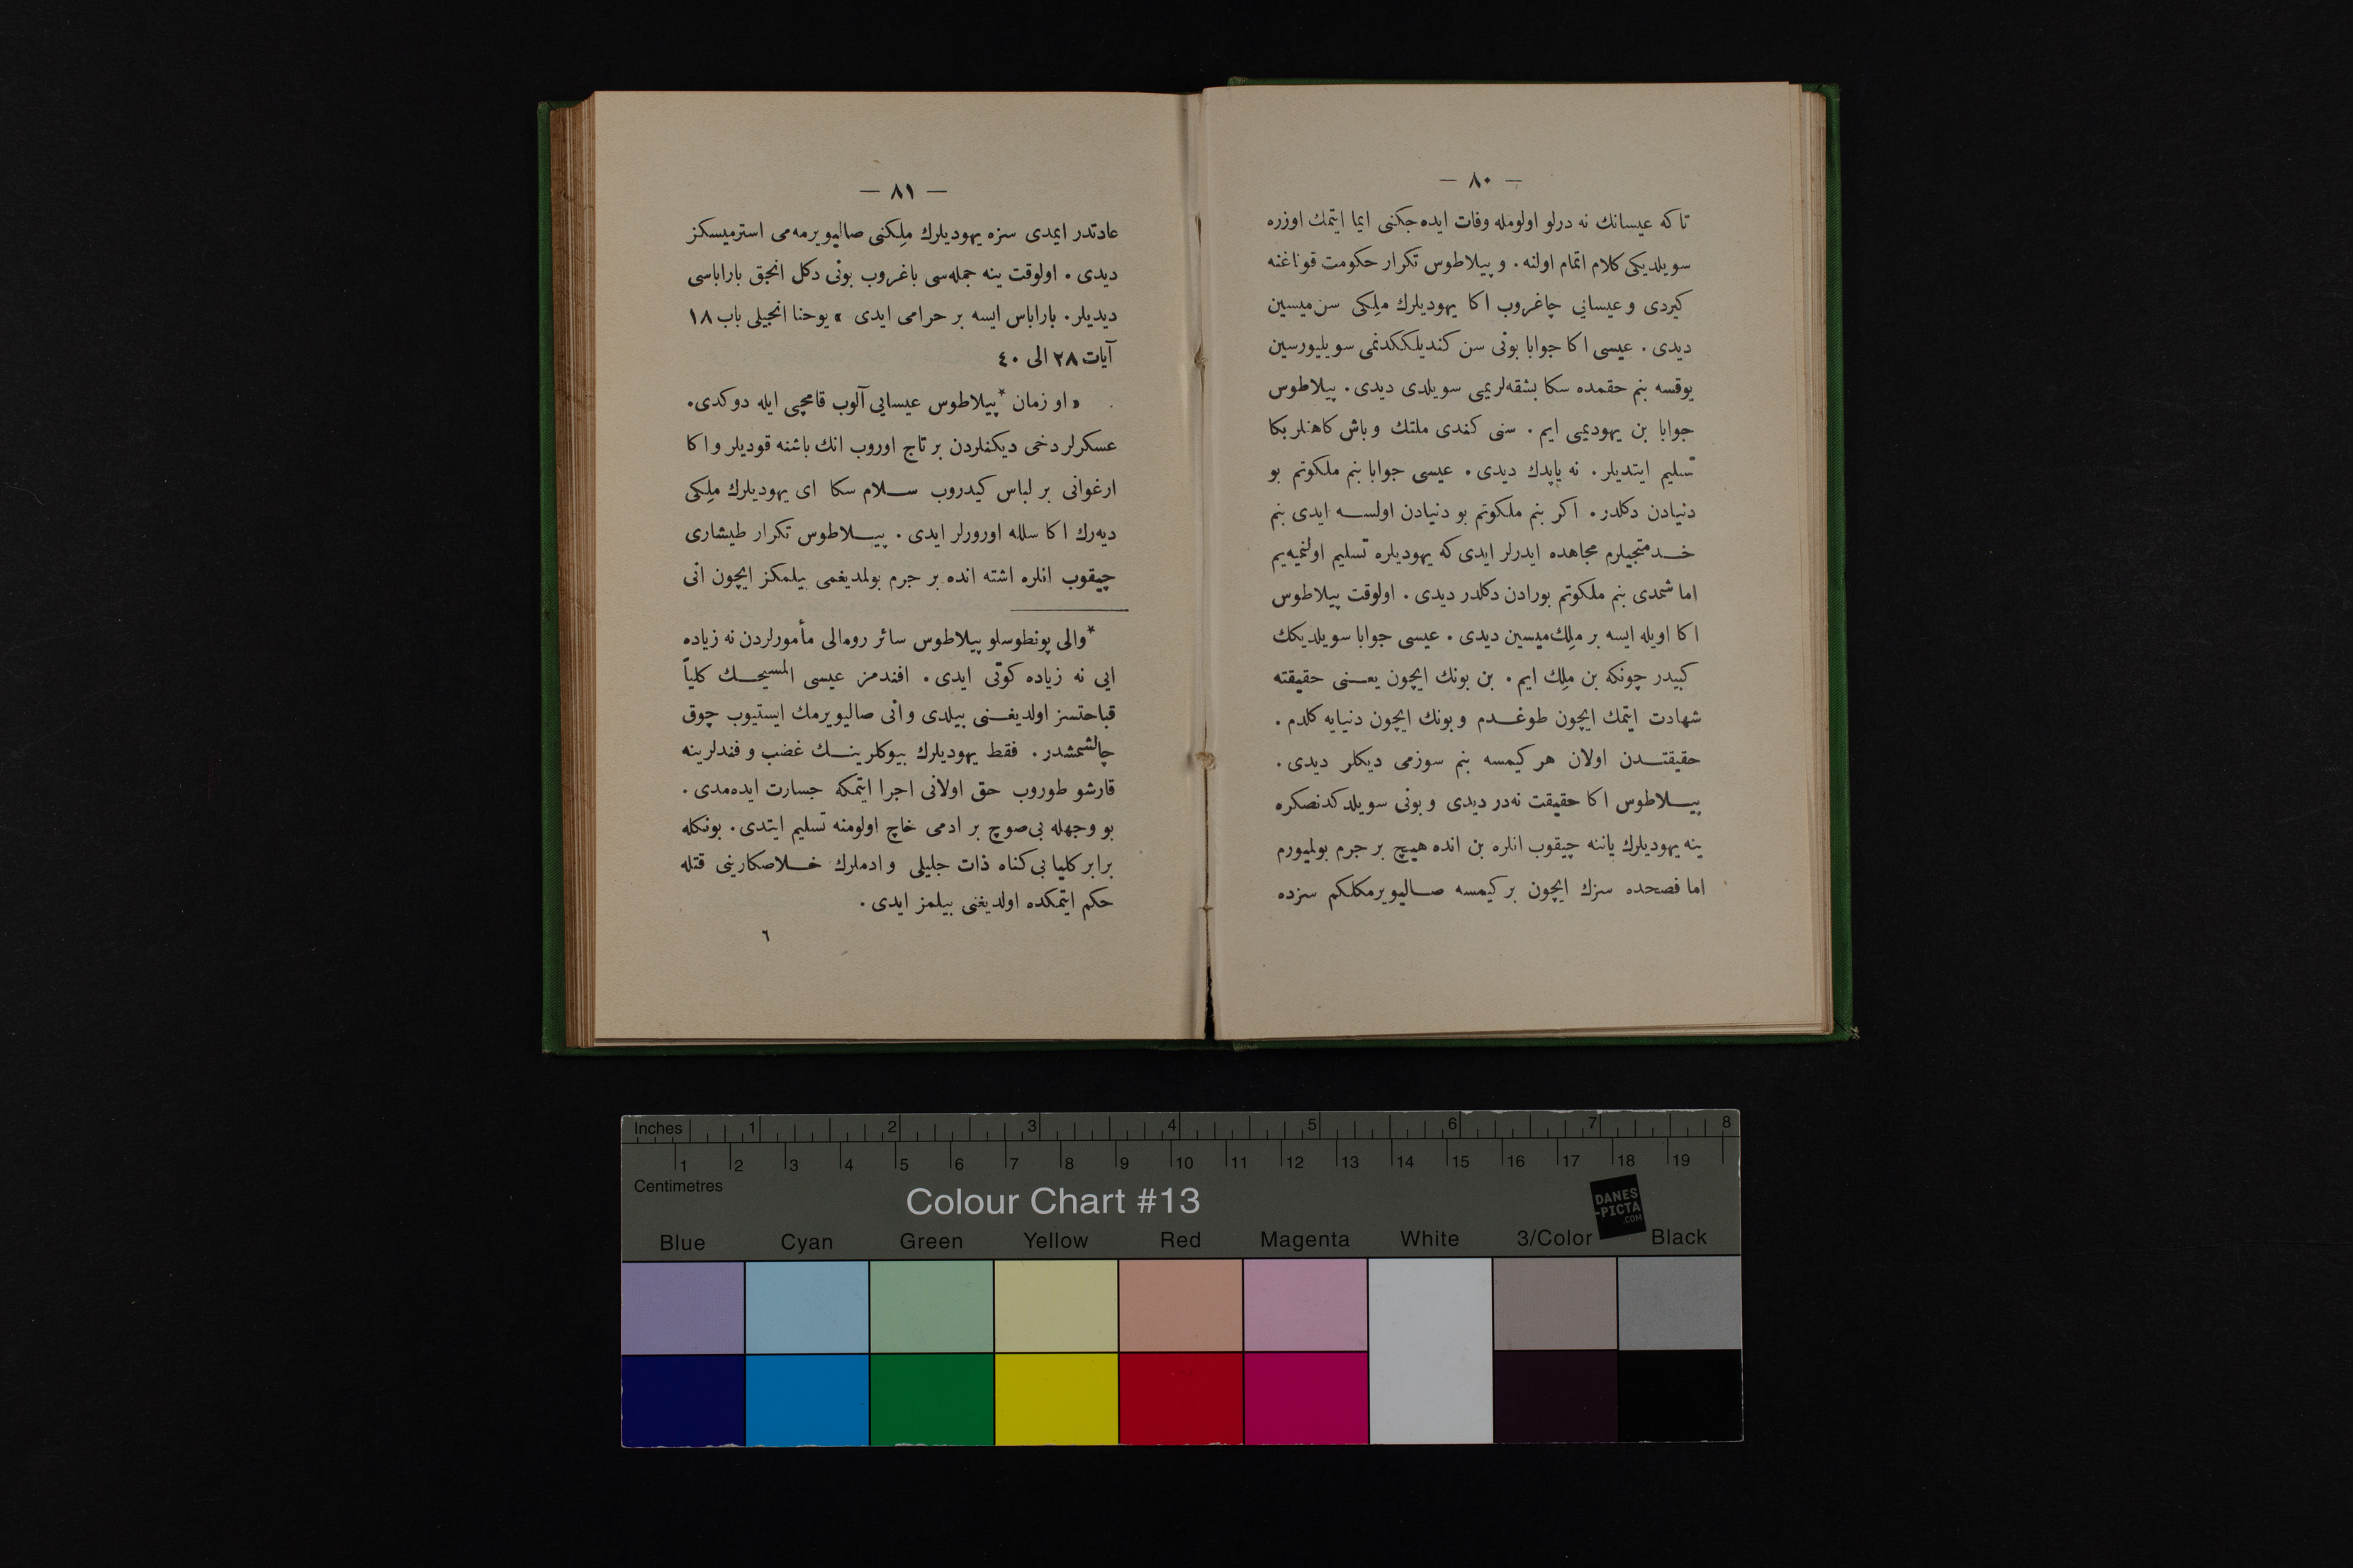 — ٨٠ —
تا كه عيسانك نه درلو اولومله وفات ايده‌جكنى ايما ايتمك اوزره
سويلديكى كلام اتمام اولنه . و پيلاطوس تكرار حكومت قوناغنه
كيردى و عيسايى چاغروب اكا يهوديلرك ملِكى سن‌ميسين
ديدى . عيسى اكا جوابا بونى سن كنديلككدنمى سويليورسين
يوقسه بنم حقمده سكا بشقه‌لريمى سويلدى ديدى . پيلاطوس
جوابا بن يهوديمى ايم . سنى كندى ملتك و باش كاهنلر بكا
تسليم ايتديلر . نه ياپدك ديدى . عيسى جوابا بنم ملكوتم بو
دنيادن دكلدر . اكر بنم ملكوتم بو دنيادن اولسه ايدى بنم
خدمتجيلرم مجاهده ايدرلر ايدى كه يهوديلره تسليم اولنميه‌يم
اما شمدى بنم ملكوتم بورادن دكلدر ديدى . اولوقت پيلاطوس
اكا اويله ايسه بر ملِك‌ميسين ديدى . عيسى جوابا سويلديكك
كبيدر چونكه بن ملِك ايم . بن بونك ايچون يعنى حقيقته
شهادت ايتمك ايچون طوغدم و بونك ايچون دنيايه كلدم .
حقيقتدن اولان هر كيمسه بنم سوزمى ديكلر ديدى .
پيلاطوس اكا حقيقت نه‌در ديدى و بونى سويلدكدنصكره
ينه يهوديلرك ياننه چيقوب انلره بن انده هيچ بر جرم بولميورم
اما فصحده سزك ايچون بر كيمسه صاليويرمكلكم سزده
— ٨١ —
عادتدر ايمدى سزه يهوديلرك ملِكنى صاليويرمه‌مى استرميسكز
ديدى . اولوقت ينه جمله‌سى باغروب بونى دكل انجق باراباسى
ديديلر . باراباس ايسه بر حرامى ايدى » يوحنا انجيلى باب ١٨
آيات ٢٨ الى ٤٠
« او زمان *پيلاطوس عيسايى آلوب قامچى ايله دوكدى .
عسكرلر دخى ديكنلردن بر تاج اوروب انك باشنه قوديلر و اكا
ارغوانى بر لباس كيدروب سلام سكا اى يهوديلرك ملِكى
ديه‌رك اكا سلله اورورلر ايدى . پيلاطوس تكرار طيشارى
چيقوب انلره اشته انده بر جرم بولمديغمى بيلمكز ايچون انى
*والى پونطوسلو پيلاطوس سائر رومالى مأمورلردن نه زياده
ايى نه زياده كوتى ايدى . افندمز عيسى المسيحك كلياً
قباحتسز اولديغنى بيلدى و انى صاليويرمك ايستيوب چوق
چالشمشدر . فقط يهوديلرك بيوكلرينك غضب و فندلرينه
قارشو طوروب حق اولانى اجرا ايتمكه جسارت ايده‌مدى .
بو وجهله بى‌صوچ بر ادمى خاچ اولومنه تسليم ايتدى . بونكله
برابر كليا بى‌كناه ذات جليلى و ادملرك خلاصكارينى قتله
حكم ايتمكده اولديغنى بيلمز ايدى .
٦
Inches 1 2 3 4 5 6 7 8
1 2 3 4 5 6 7 8 9 10 11 12 13 14 15 16 17 18 19
Centimetres
Colour Chart #13
DANES
-PICTA
.COM
Blue Cyan Green Yellow Red Magenta White 3/Color Black